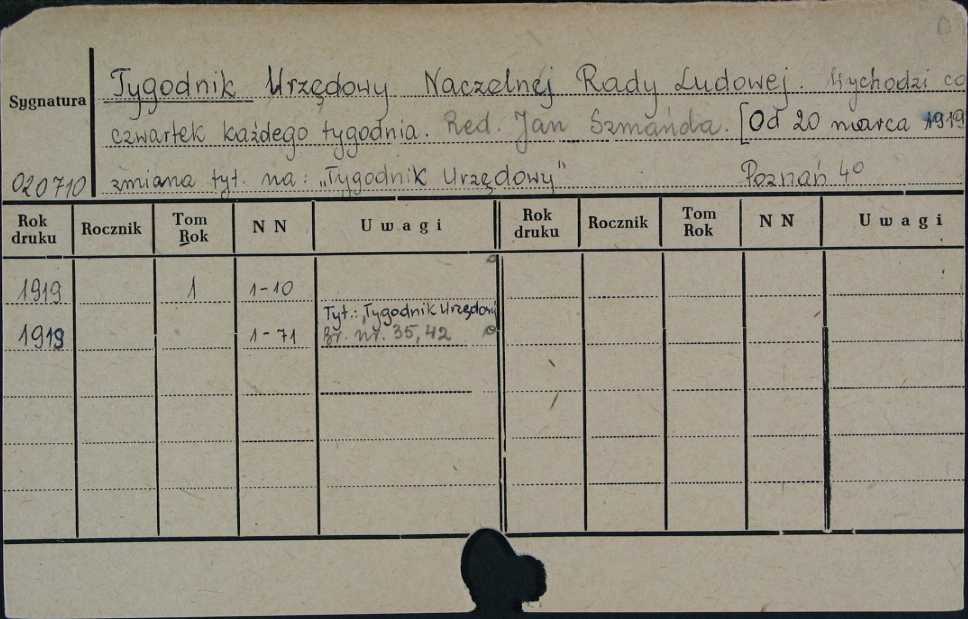 Tygodnik Urzędowy Naczelnej Rady Ludowej. Wychodzi co
Sygnatura
czwartek każdego tygodnia. Red. Jan Szmańda. [Od 20 marca 1919
020710 zmiana tyt. na: „Tygodnik Urzędowy" Poznań 4°
Rok druku Rocznik Tom Rok N N Uwagi Rok druku Rocznik Tom Rok N N Uwagi
1919 1 1-10
Tyt.: „Tygodnik Urzędowy
1919 1-71 Br. nr. 35, 42